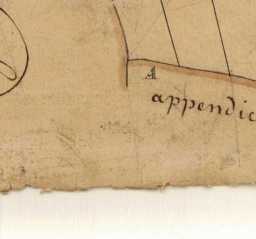 A
appendic